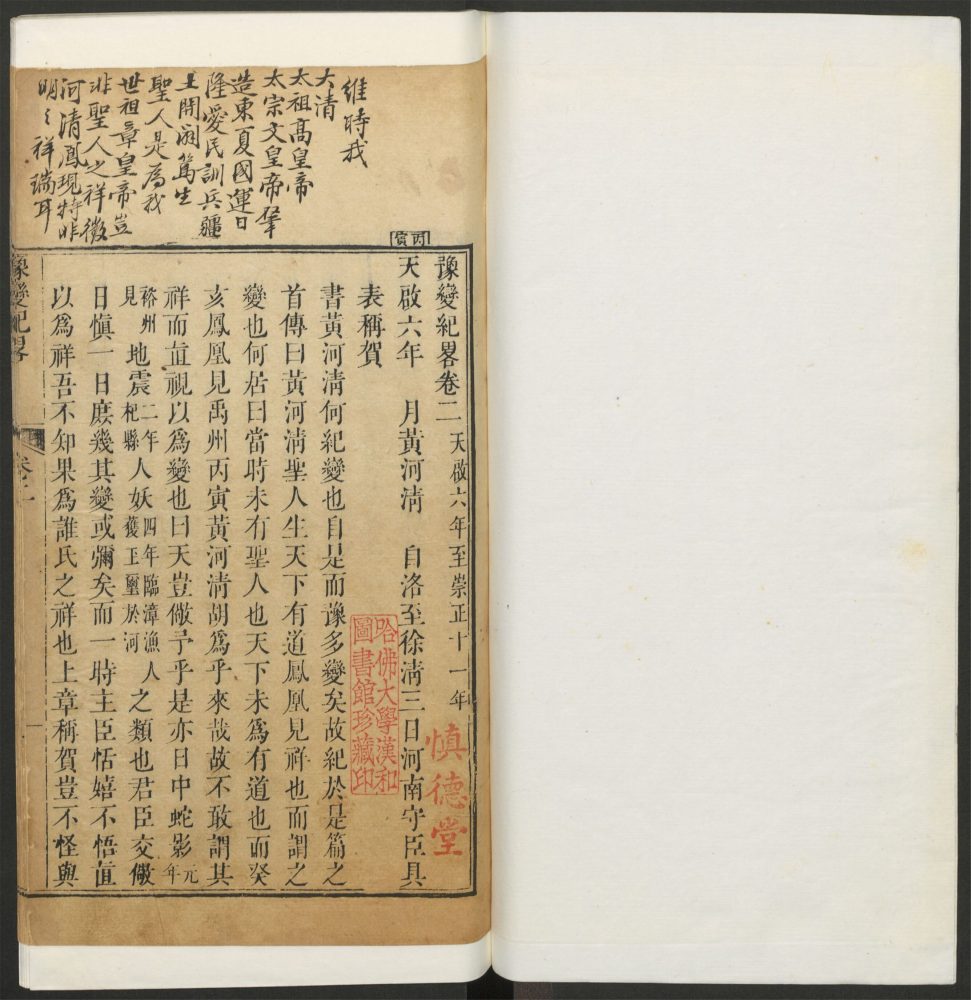 維時我
大清
太祖高皇帝
太宗文皇帝肇
造東夏國運日
隆愛民訓兵疆
土開闢篤生
聖人是爲我
世祖章皇帝豈
非聖人之祥徵
河清鳳現特非
明之祥瑞耳
丙寅
豫變紀畧卷二 天啟六年至崇正十一年
天啟六年 月黃河淸 自洛至徐淸三日河南守臣具
表稱賀
書黃河淸何紀變也自是而豫多變矣故紀於是篇之
首傳曰黃河淸聖人生天下有道鳳凰見祥也而謂之
變也何居曰當時未有聖人也天下未爲有道也而癸
亥鳳凰見禹州丙寅黃河淸胡爲乎來哉故不敢謂其
祥而直視以爲變也曰天豈儆予乎是亦日中蛇影元年
裕州見地震二年杞縣人妖四年臨漳漁人獲玉璽於河之類也君臣交儆
日愼一日庶幾其變或彌矣而一時主臣恬嬉不悟直
以爲祥吾不知果爲誰氏之祥也上章稱賀豈不怪與
豫變紀畧
卷二
一
慎德堂
哈佛大學漢和
圖書館珍藏印